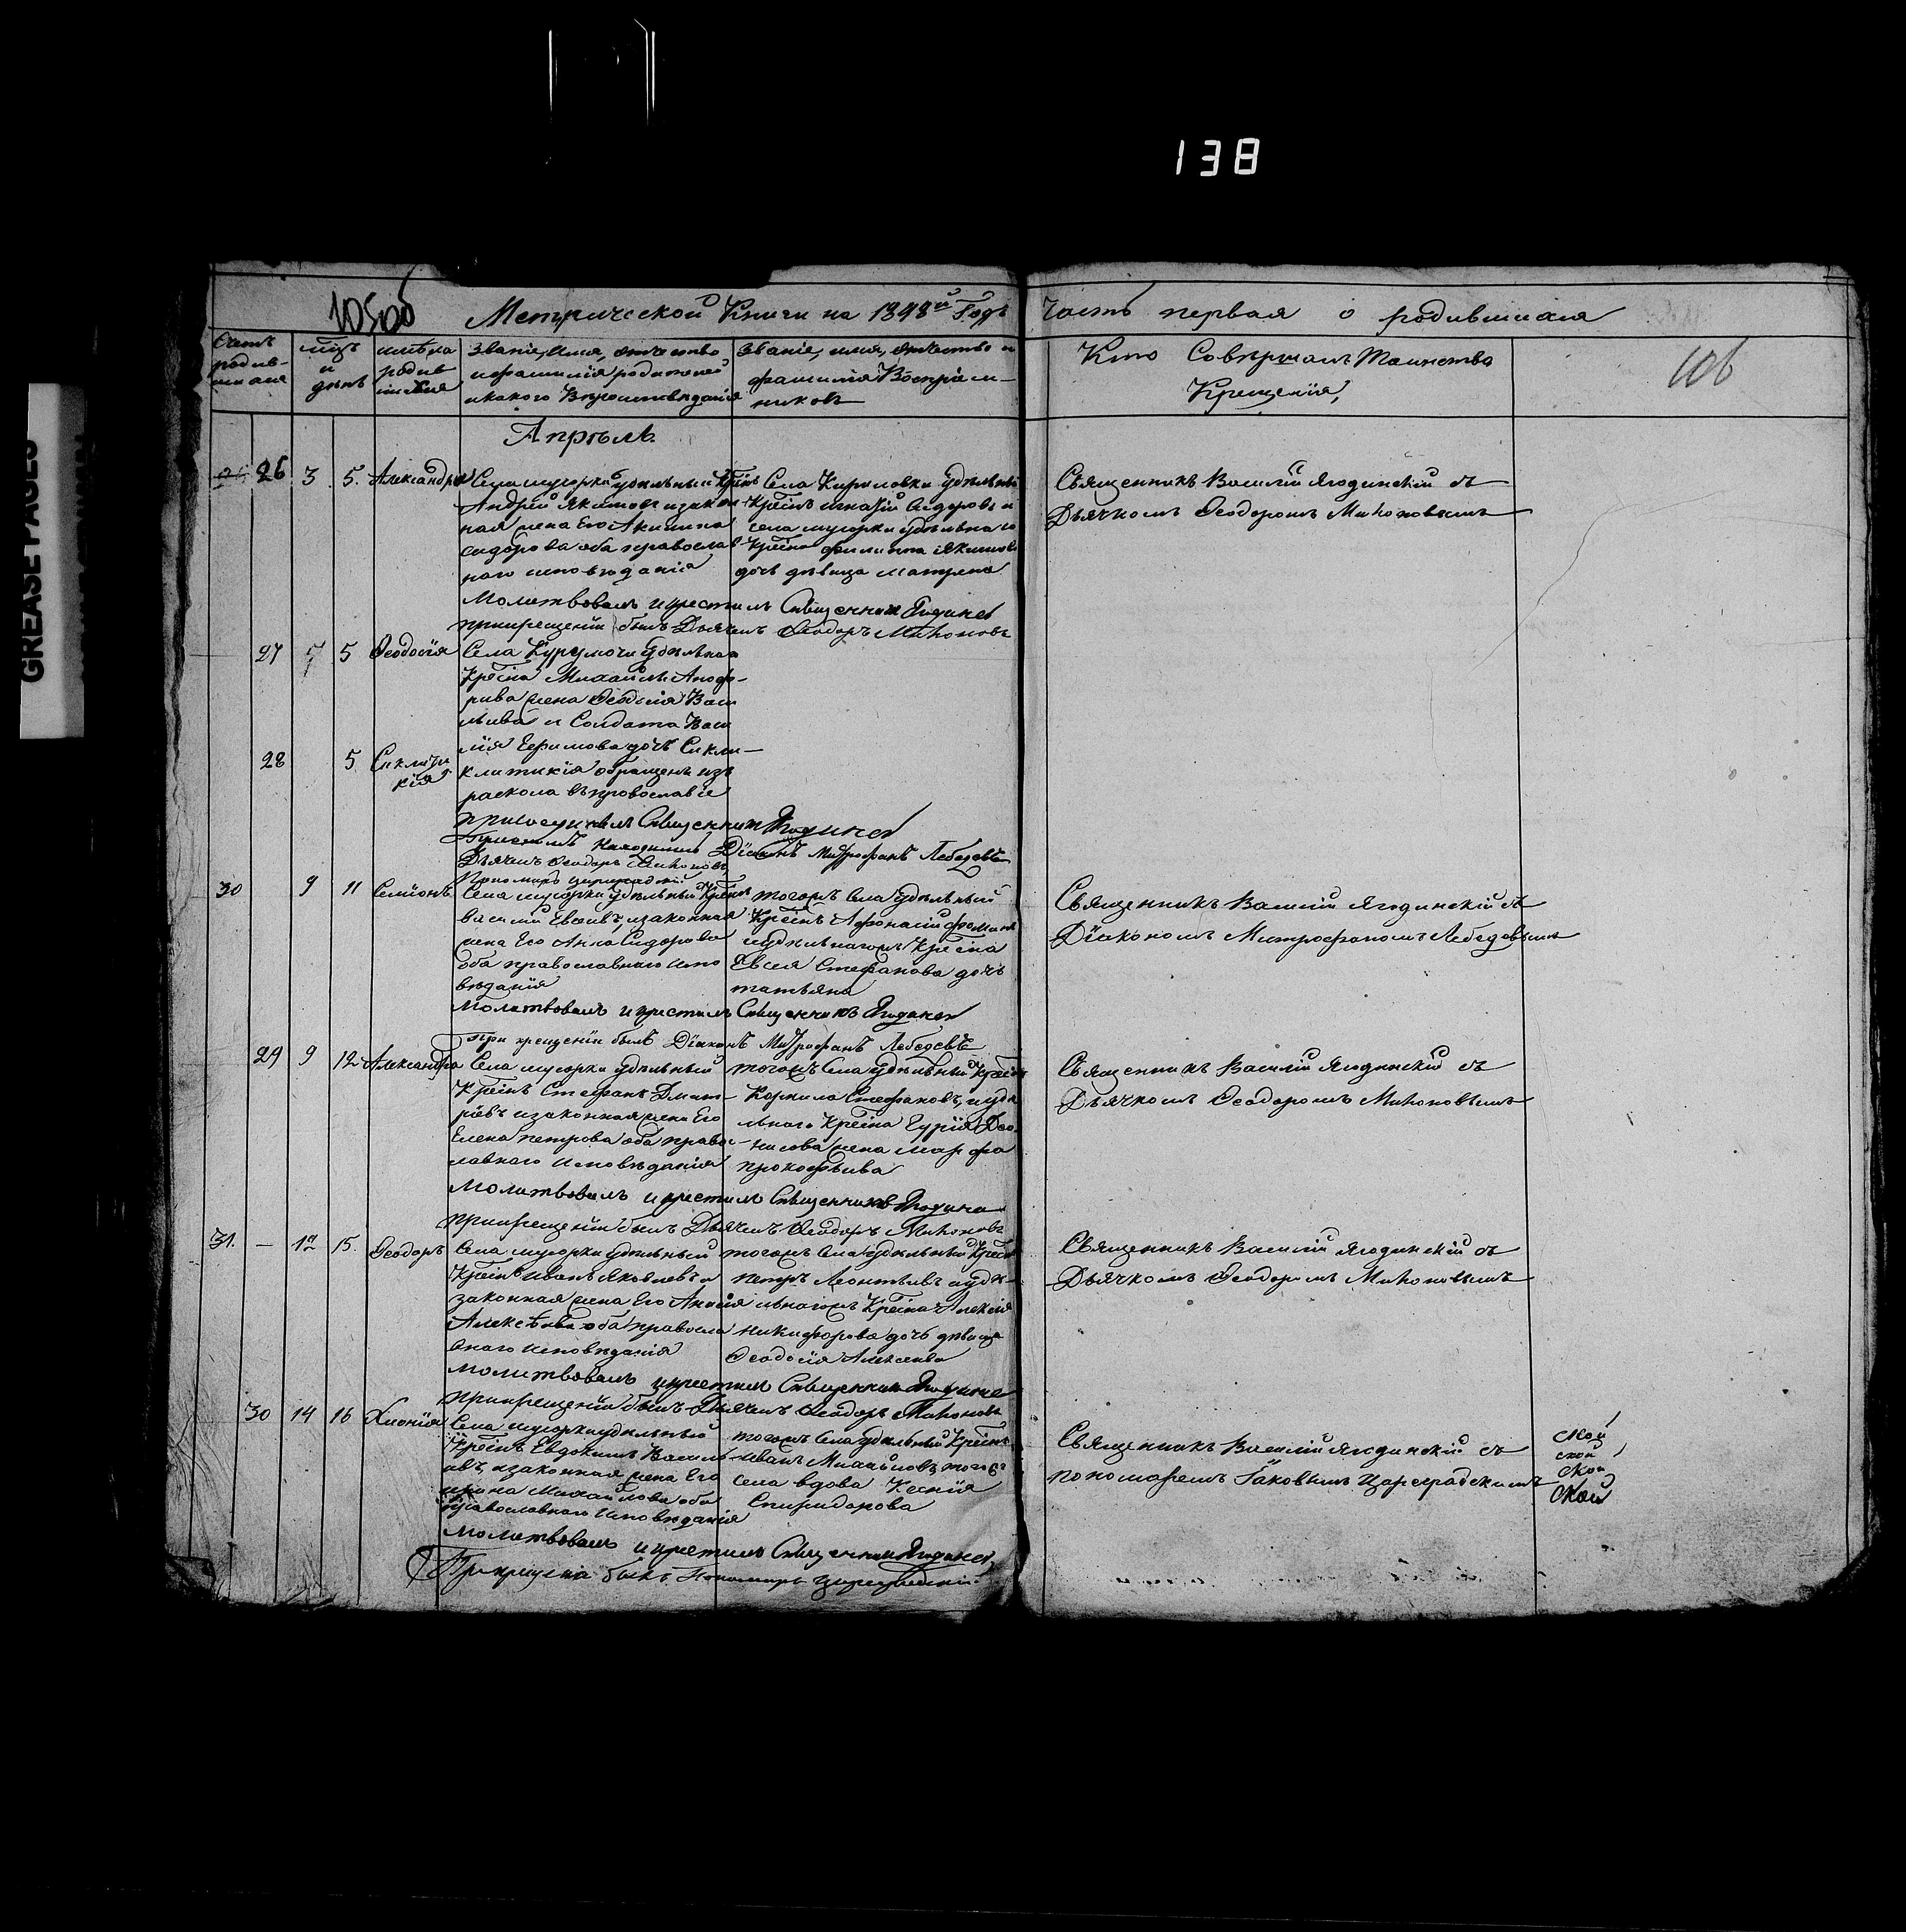 138
GREASE PAGES
105об
Метрической Книги на 1848й Годъ
Часть первая о родившихся
106
Счетъ родив-шихся
мцъ и день
имѣна родив шихся
Званіе, Имя, отчество и фамилія родителей и какого Вѣроисповѣданія
Званіе, имя, отчество и фамилія Воспріем-никовъ
Кто Совершалъ Таинство
Крещенія,
Апрѣль
26 3 5. Александра
Села мусорки удѣльный Крѣнъ
Андрей Якимовъ и закон
ная жена Его Акилина
Сидорова оба православ
наго исповѣданія
Села Кириловки удѣльный
Крѣнъ Игнатій Сидоровъ и
села мусорки удѣльнаго
Крѣна филиппа Якимова
дочь дѣвица матрена
Священникъ Василій Ягодинскій съ
Дьячкомъ Ѳеодоромъ Миһоновымъ
Молитвовалъ и крестилъ Священникъ Ягодинс
при крещеніи былъ Дьячекъ Ѳеодоръ
27 5 5 Ѳеодосія
Села Курумочи удѣльна
Крѣна Михаила
жена Ѳеодосія Васи
льева и Солдата Васи
28 5 Синклити кія
лія Ефимова дочь Синкли-
клитикія обращены изъ
раскола въ православіе
присоединилъ Священникъ Ягодинс
Діаконъ Митрофанъ Лебедевъ
Дьячекъ Ѳеодоръ
Пономарь Цареградскій
30 9 11 Семіонъ
Села мусорки удѣльный Крѣнъ
василій Евсѣивъ, и законная
жена Его Анна Сидорова
оба православнаго испо
вѣданія
тогожъ Села удѣльный
Крѣнъ Афонасій
и удѣльнагожъ Крѣна
Евсея Стефанова дочь
татьяна
Священникъ Василій Ягодинскій съ
Діакономъ Митрофаномъ Лебедевымъ
Молитвовалъ и крестилъ Священникъ Ягодинс
При крещеніи былъ Діаконъ Митрофанъ Лебедевъ
29 9 12 Александра
Села мусорки удѣльный
Крѣнъ Стефанъ Дмит-
ріевъ и законная жена Его
Елена петрова оба право-
славнаго исповѣданія
тогожъ Села удѣльный Крѣнъ
Корнила Стефановъ, и удѣ
льнаго Крѣна Гурія
жена марфа
прокофьива
Священникъ Василій Ягодинскій съ
Дьячкомъ Ѳеодоромъ Миһоновымъ
Молитвовалъ и крестилъ Священникъ Ягодинс
при крещеніи былъ Дьячекъ Ѳеодоръ
31. — 15. Ѳеодоръ
Села мусорки удѣльный
Крѣнъ Иванъ Яковлевъ и
законная жена Его
Алексѣева оба правосла
внаго исповѣданія
тогожъ Села удѣльный Крѣнъ
петръ Леонтьивъ и удѣ-
льнагожъ Крѣна Алексѣя
никифорова дочь дѣвица
Ѳеодосія Алексѣева
Священникъ Василій Ягодинскій съ
Дьячкомъ Ѳеодоромъ Миһоновымъ
Молитвовалъ и крестилъ Священникъ Ягодинс
при крещеніи былъ Дьячекъ Ѳеодоръ
30 14 16 Хіонія
Села мусорки удѣльный
Крѣнъ Евдокимъ Василь
ивъ, и законная жена Его
ирина Михайлова оба
православнаго исповѣданія
тогожъ Села удѣльный Крѣнъ
Иванъ Михайловъ, тогожъ
села вдова Ксенія
Спиридонова
Священникъ Василій Ягодинскій съ
пономаремъ Іаковымъ Цареградскимъ
ской
ской
ской
ской
Молитвовалъ и крестилъ Священникъ Ягодинс
При крещеніи былъ Пономарь Цареградскій